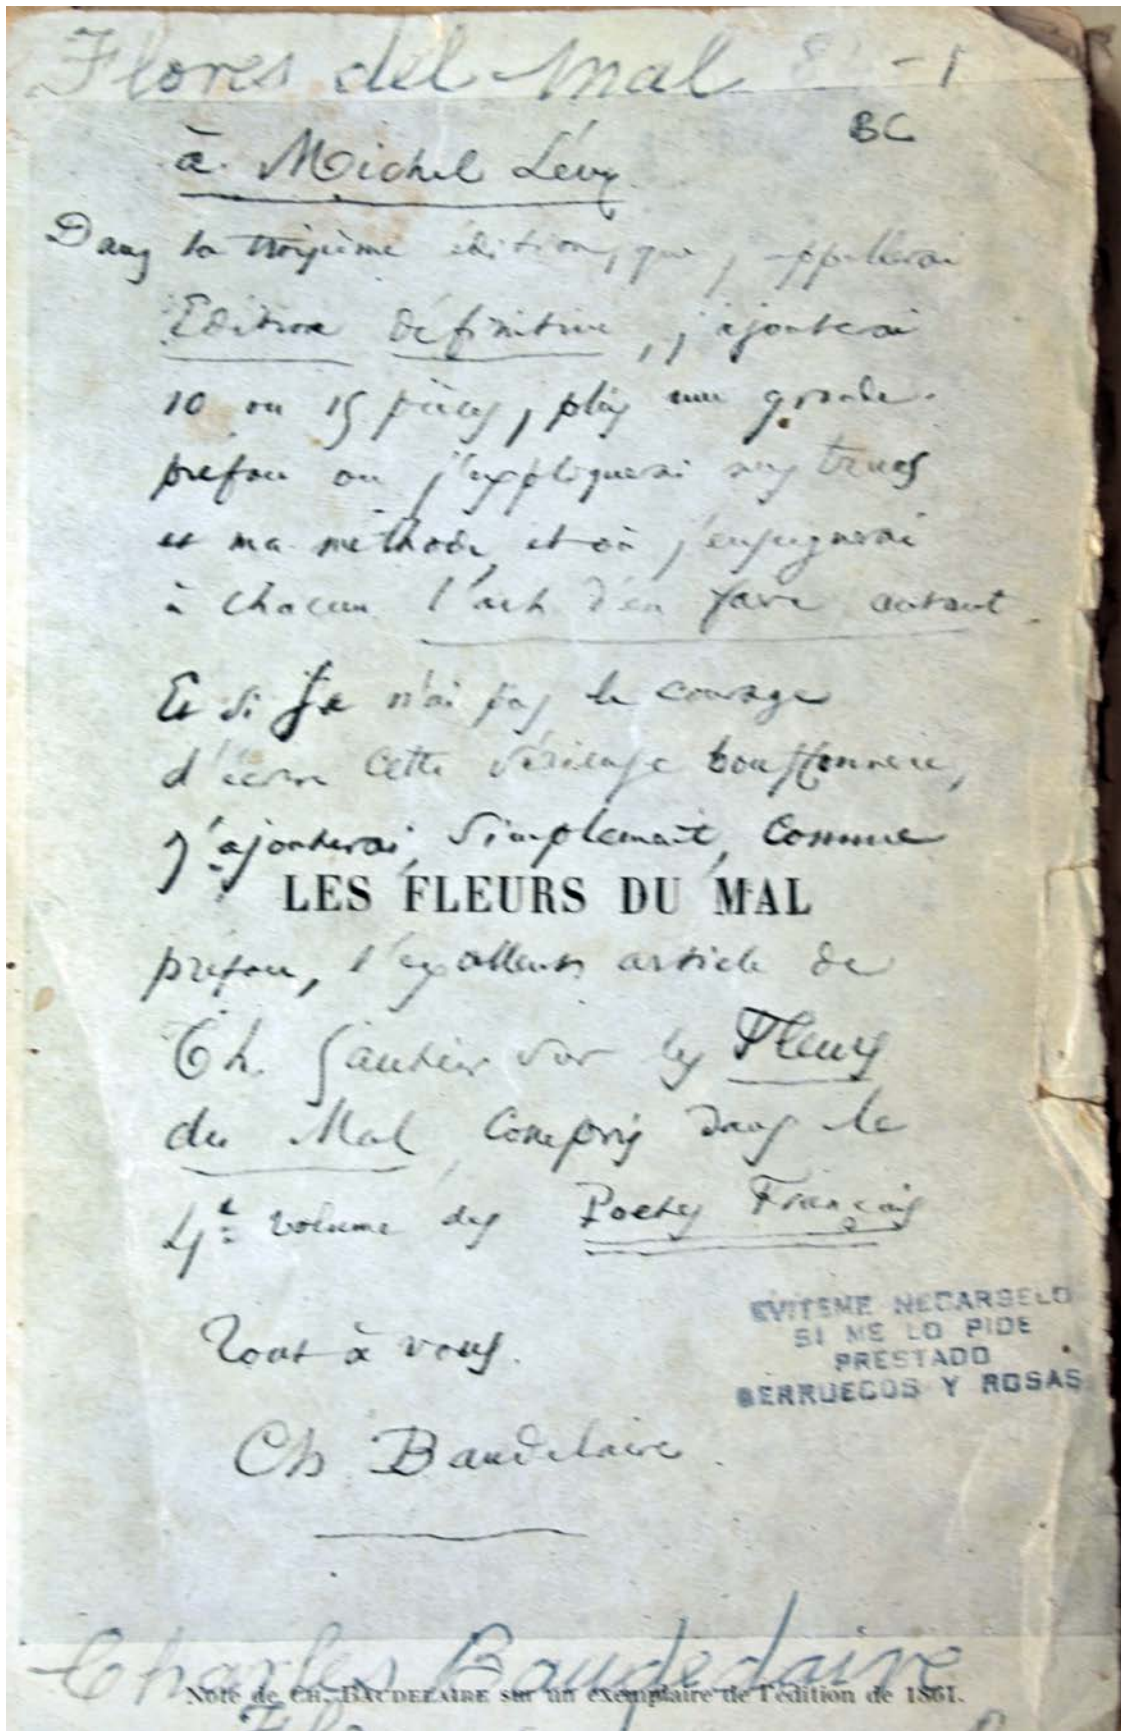 Flores del mal -1
BC
à Michel Lévy
Dans la troisième édition, que j'appellerai
Edition définitive, j'ajouterai
10 ou 15 pièces, plus une grande
préface où j'expliquerai mes trucs
et ma méthode, et où j'enseignerai
à chacun l'art d'en faire autant.
Et si je n'ai pas le courage
d'écrire cette sérieuse bouffonnerie,
j'ajouterai, simplement, comme
LES FLEURS DU MAL
préface, l'excellent article de
Th. Gautier sur les Fleurs
du Mal, compris dans le
4e volume des Poetes Français
Tout à vous.
EVITEME NEGARSELO
SI ME LO PIDE
PRESTADO
BERRUECOS Y ROSAS
Ch. Baudelaire.
Charles Baudedaire
Note de CH. BAUDELAIRE sur un exemplaire de l'édition de 1861.